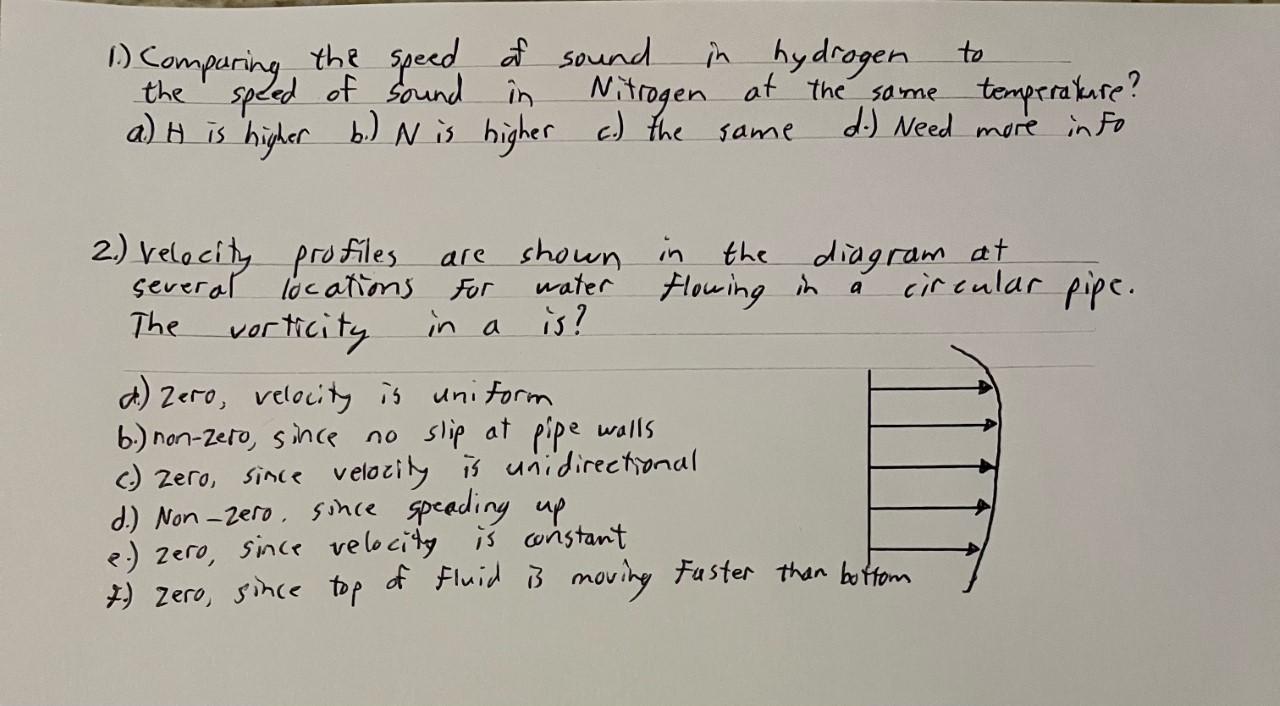 1.) Comparing the speed of sound in hydrogen to
the speed of sound in Nitrogen at the same temperature?
a) H is higher b.) N is higher c.) the same d.) Need more info
2.) Velocity profiles are shown in the diagram at
several locations for water flowing in a circular pipe.
The vorticity in a is?
a.) Zero, velocity is uniform
b.) non-zero, since no slip at pipe walls
c.) zero, since velocity is unidirectional
d.) Non-zero, since speading up
e.) zero, since velocity is constant
f.) zero, since top of fluid is moving faster than bottom